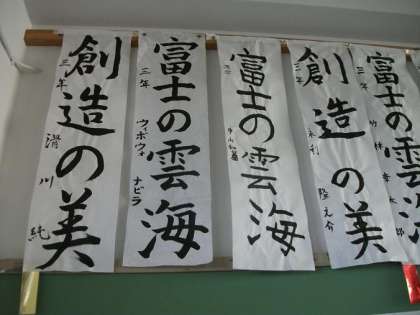 創造の美
三年
滑川純
富士の雲海
三年
ウィボウォ
ナビラ
富士の雲海
創造の美
三年
永利
隆之介
富士の雲海
三年